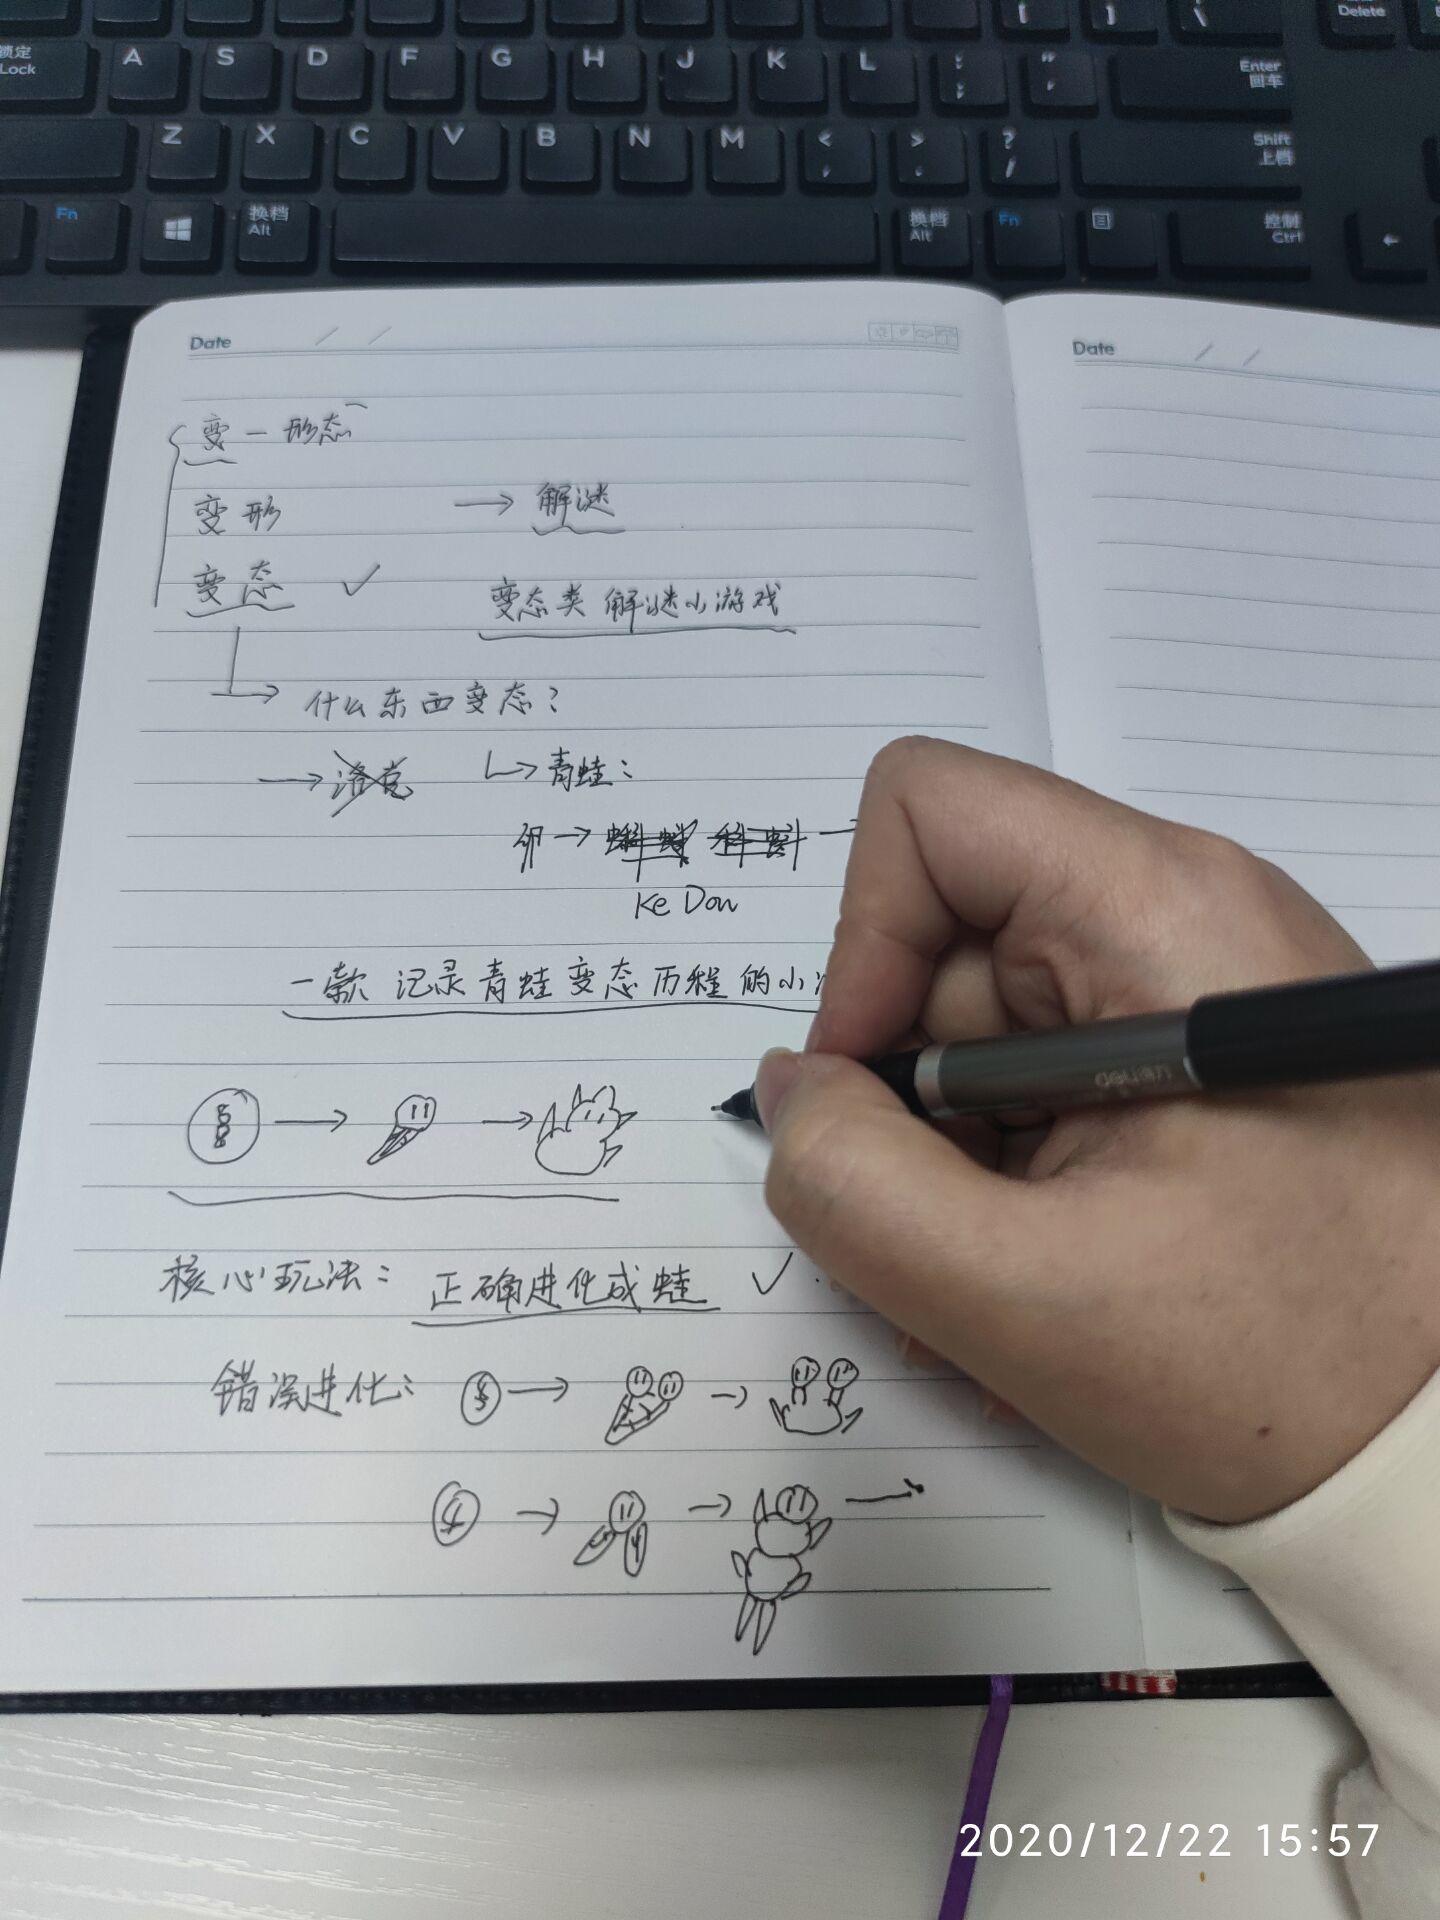 锁定
Lock
A S D F G H J K L : ; " ' Enter 回车
[ ] \ Delete
Z X C V B N M < , > . ? / Shift 上档
Fn 换档 Alt 换档 Alt Fn 控制 Ctrl ←
Date / /
Date / /
变一形态
变形 → 解谜
变态 ✓ 变态类解谜小游戏
→ 什么东西变态?
→ 洛克 → 青蛙:
卵 → 蝌蚪 →
Ke Dou
一款记录青蛙变态历程的小
核心玩法: 正确进化成蛙 ✓
错误进化:
deli
2020/12/22 15:57